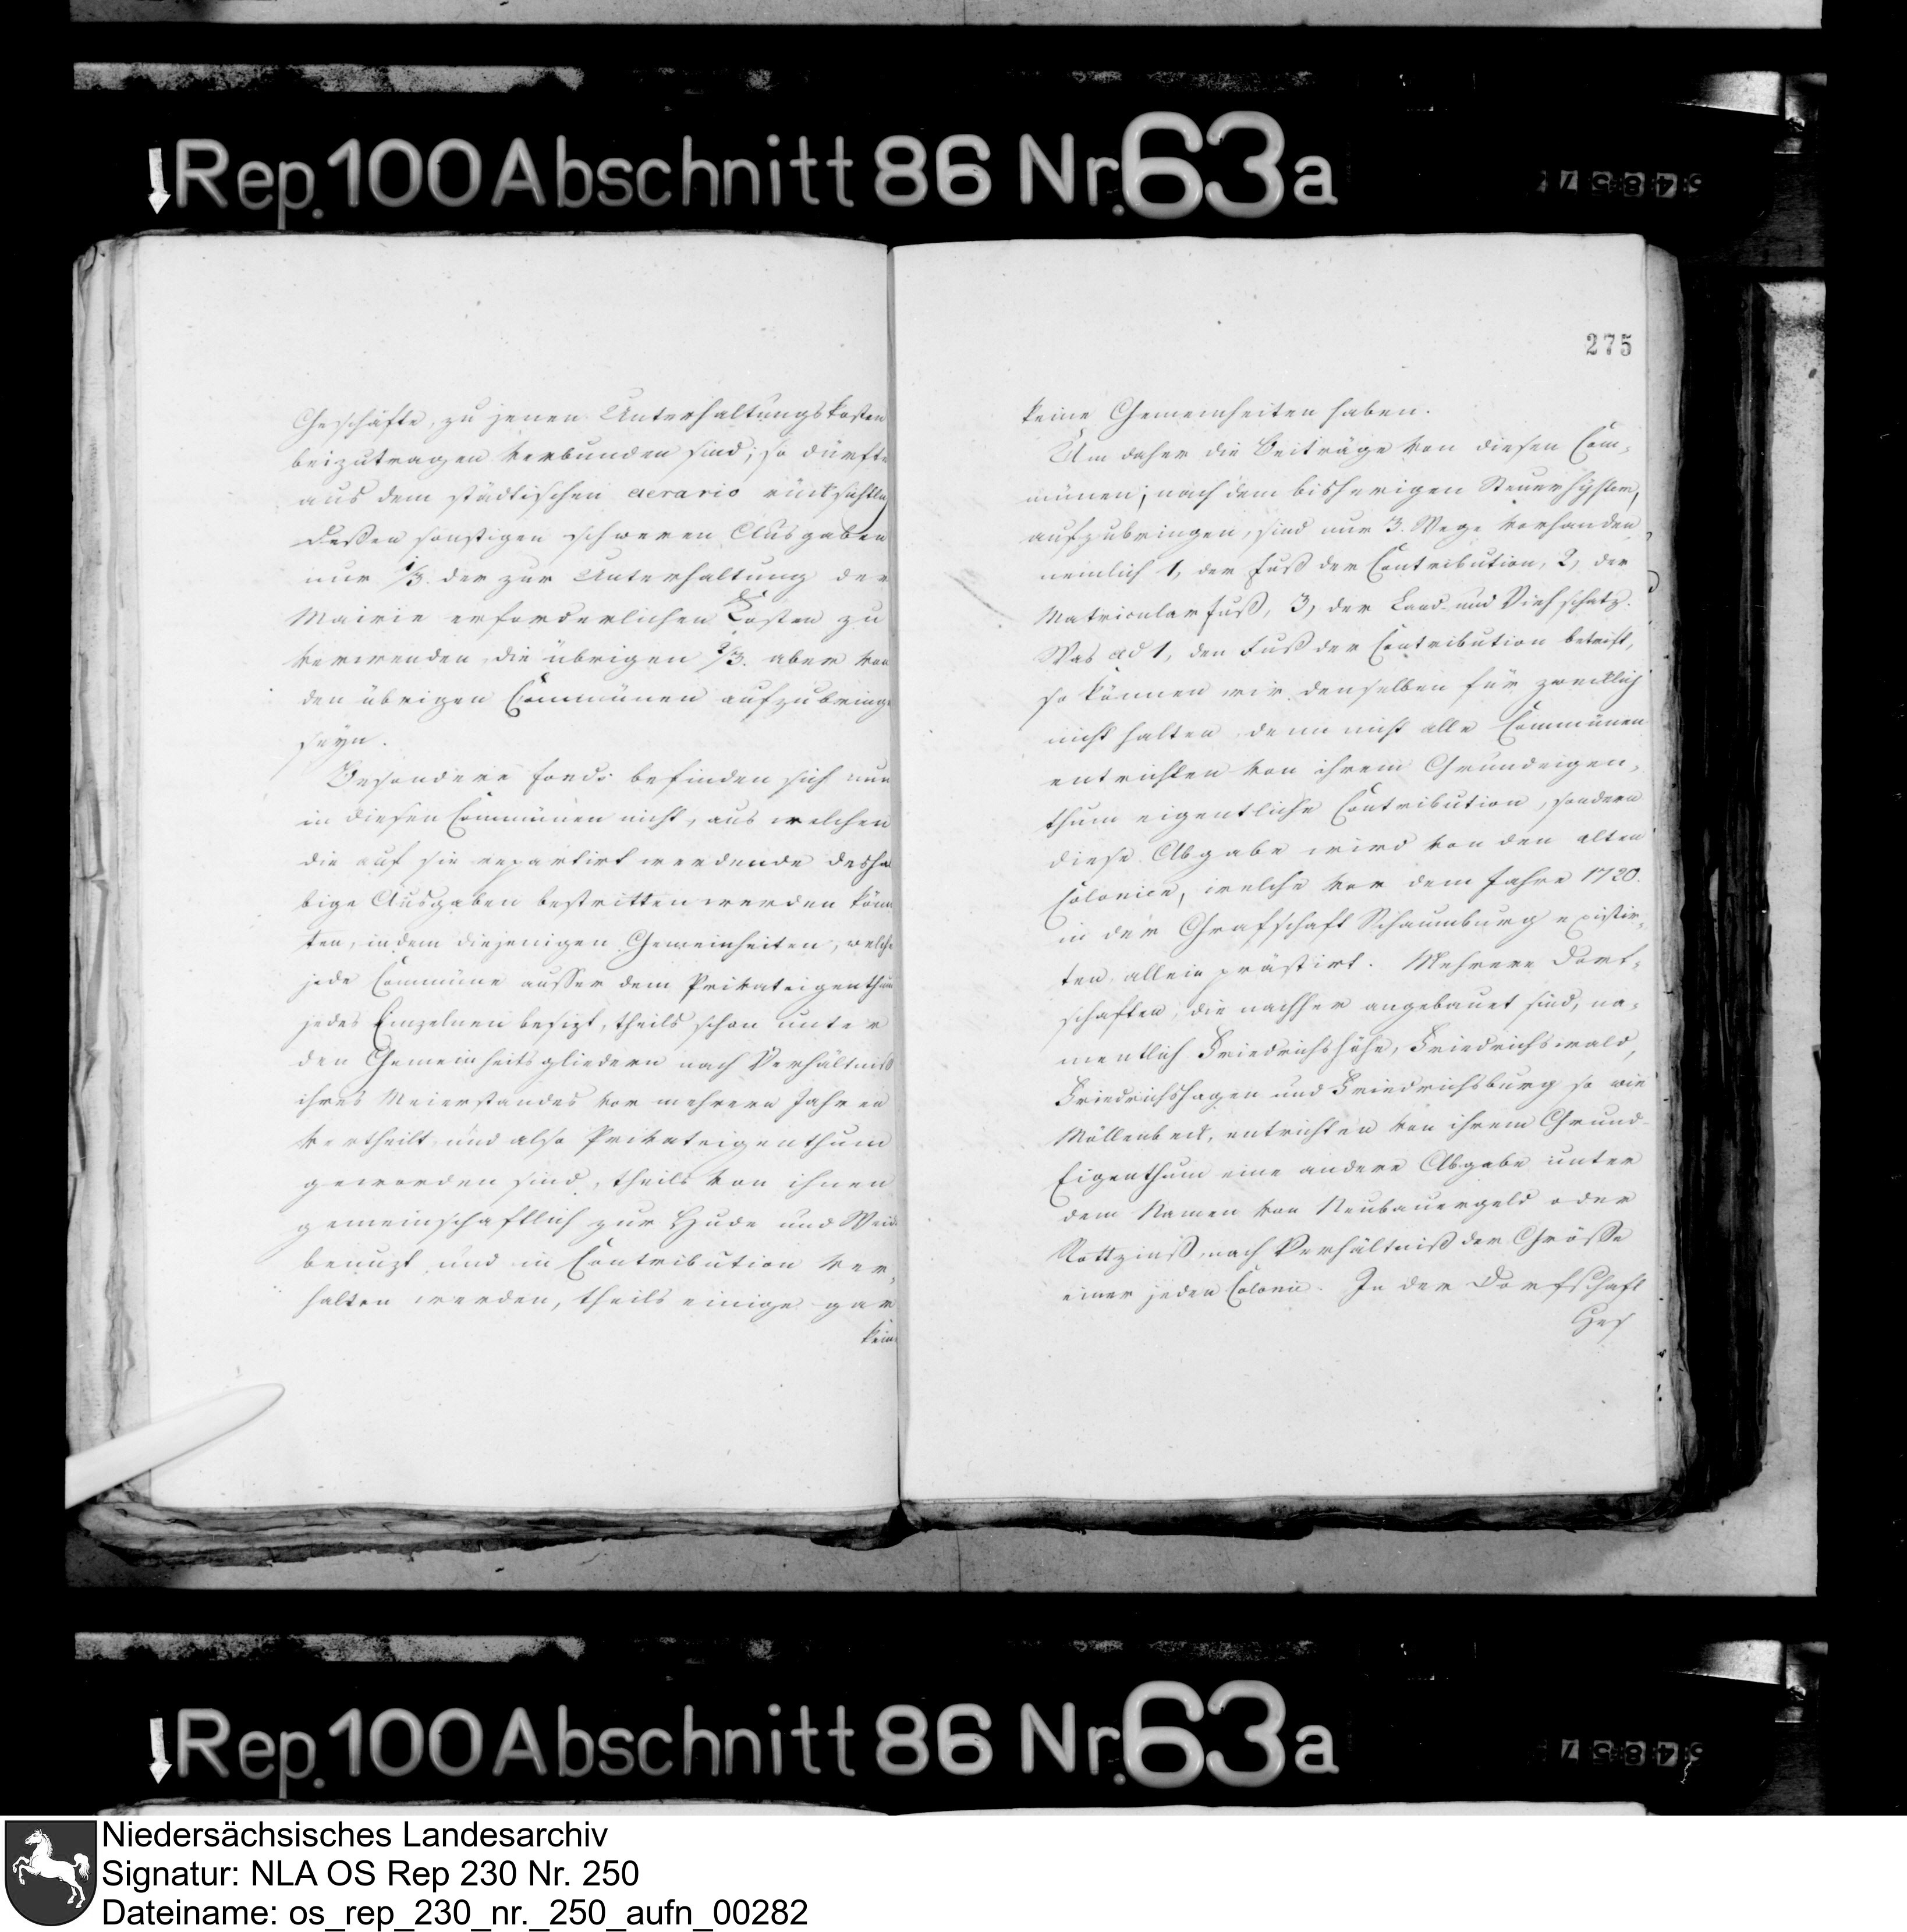 Rep. 100 Abschnitt 86 Nr. 63a
Geschäfte, zu jenen Unterhaltungskosten
beizutragen verbunden sind; so dürfte
aus dem städtischen aerario rücksichtlich
deßen sonstigen schweren Ausgaben
nur 1/3. der zur Unterhaltung der
Mairie erforderlichen Kosten zu
verwenden, die übrigen 2/3. aber von
den übrigen Communen aufzubringen
seyn.
Besondere fonds befinden sich nun
in diesen Communen nicht, aus welchen
die auf sie repartirt werdende desha
bige Ausgaben bestritten werden könn
ten, indem diejenigen Gemeinheiten, welche
jede Commune ausser dem Privateigenthum
jedes Einzelnen besizt, theils schon unter
den Gemeinheitsgliedern nach Verhältniß
ihres Meierstandes vor mehrern Jahren
vertheilt und also Privateigenthum
geworden sind, theils von ihnen
gemeinschaftlich zur Hude und Weide
benuzt und in Contribution ver-
halten werden, theils einige gar
keine
275
keine Gemeinheiten haben.
Um daher die Beiträge von diesen Com-
munen, nach dem bisherigen Steuersystem,
aufzubringen, sind nur 3. Wege vorhanden
nemlich 1, der Fuß der Contribution, 2, der
Matricularfuß, 3, der Land- und Viehschatz.
Was ad 1, den Fuß der Contribution betrift,
so können wir denselben für zwecklich
nicht halten, denn nicht alle Communen
entrichten von ihrem Grundeigen-
thum eigentliche Contribution, sondern
diese Abgabe wird von den alten
Colonien, welche vor dem Jahre 1720.
in der Grafschaft Schaumburg existir-
ten, allein prästirt. Mehrere Dorf-
schaften, die nachher angebauet sind, na-
mentlich Friedrichshöhe, Friedrichswald,
Friedrichshagen und Friedrichsburg so wie
Möllenbeck, entrichten von ihrem Grund-
Eigenthum eine andere Abgabe unter
dem Namen von Neubauergeld oder
Rottzinß, nach Verhältniß der Größe
einer jeden Colonie. In der Dorfschaft
Hes
Rep. 100 Abschnitt 86 Nr. 63a
Niedersächsisches Landesarchiv
Signatur: NLA OS Rep 230 Nr. 250
Dateiname: os_rep_230_nr._250_aufn_00282